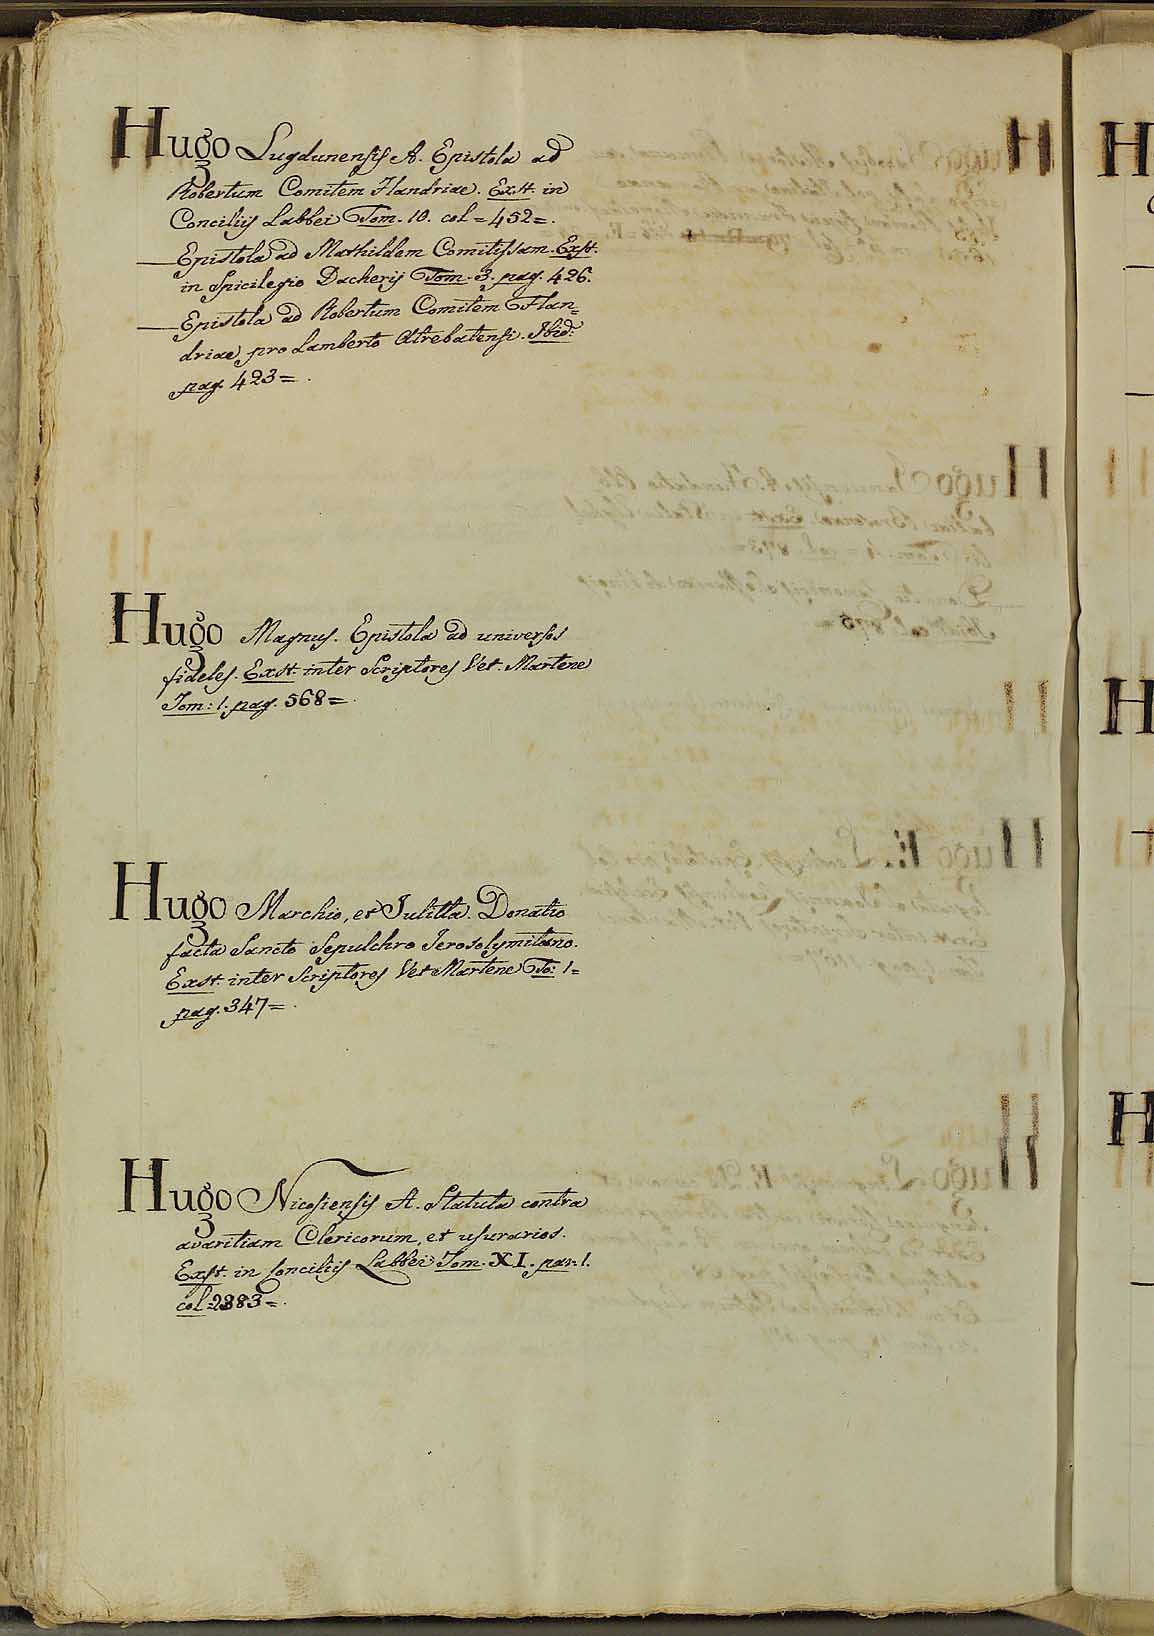 Hugo Lugdunensis A. Epistola ad
Robertum Comitem Flandriae. Exst. in
Conciliis Labbei Tom. 10. col = 452 = .
— Epistola ad Mathildem Comitissam. Exst.
in Spicilegio Dacherij Tom. 3. pag. 426.
— Epistola ad Robertum Comitem Flan=
driae, pro Lamberto Atrebatensi. Ibid:
pag. 423 = .
Hugo Magnus. Epistola ad universos
fideles. Exst. inter Scriptores Vet. Martene
Tom: 1. pag. 568 = .
Hugo Marchio, et Julitta. Donatio
facta Sancto Sepulchro Jerosolymitano.
Exst. inter Scriptores Vet Martene To: 1 =
pag. 347 = .
Hugo Nicosiensis A. Statuta contra
avaritiam Clericorum, et usurarios.
Exst. in Conciliis Labbei Tom. XI. par. 1.
col = 2383 = .